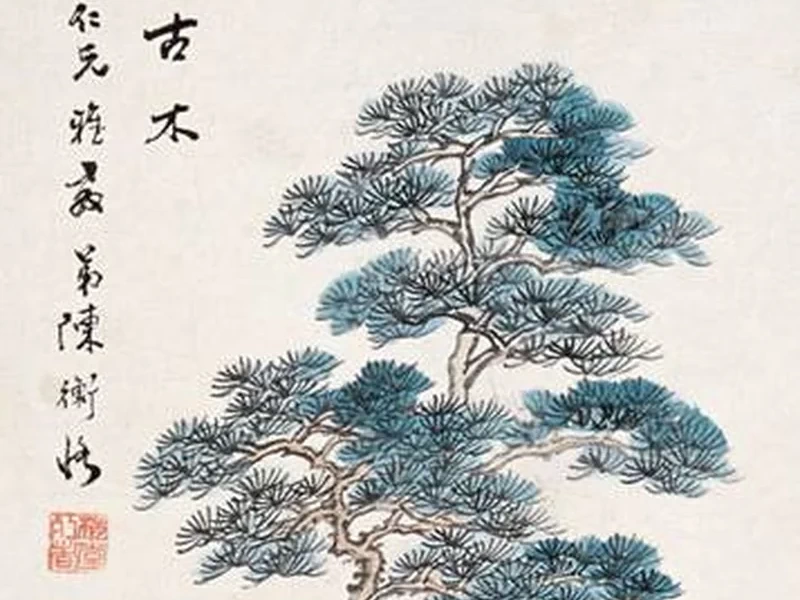 古木
仁兄雅教弟陳衡恪